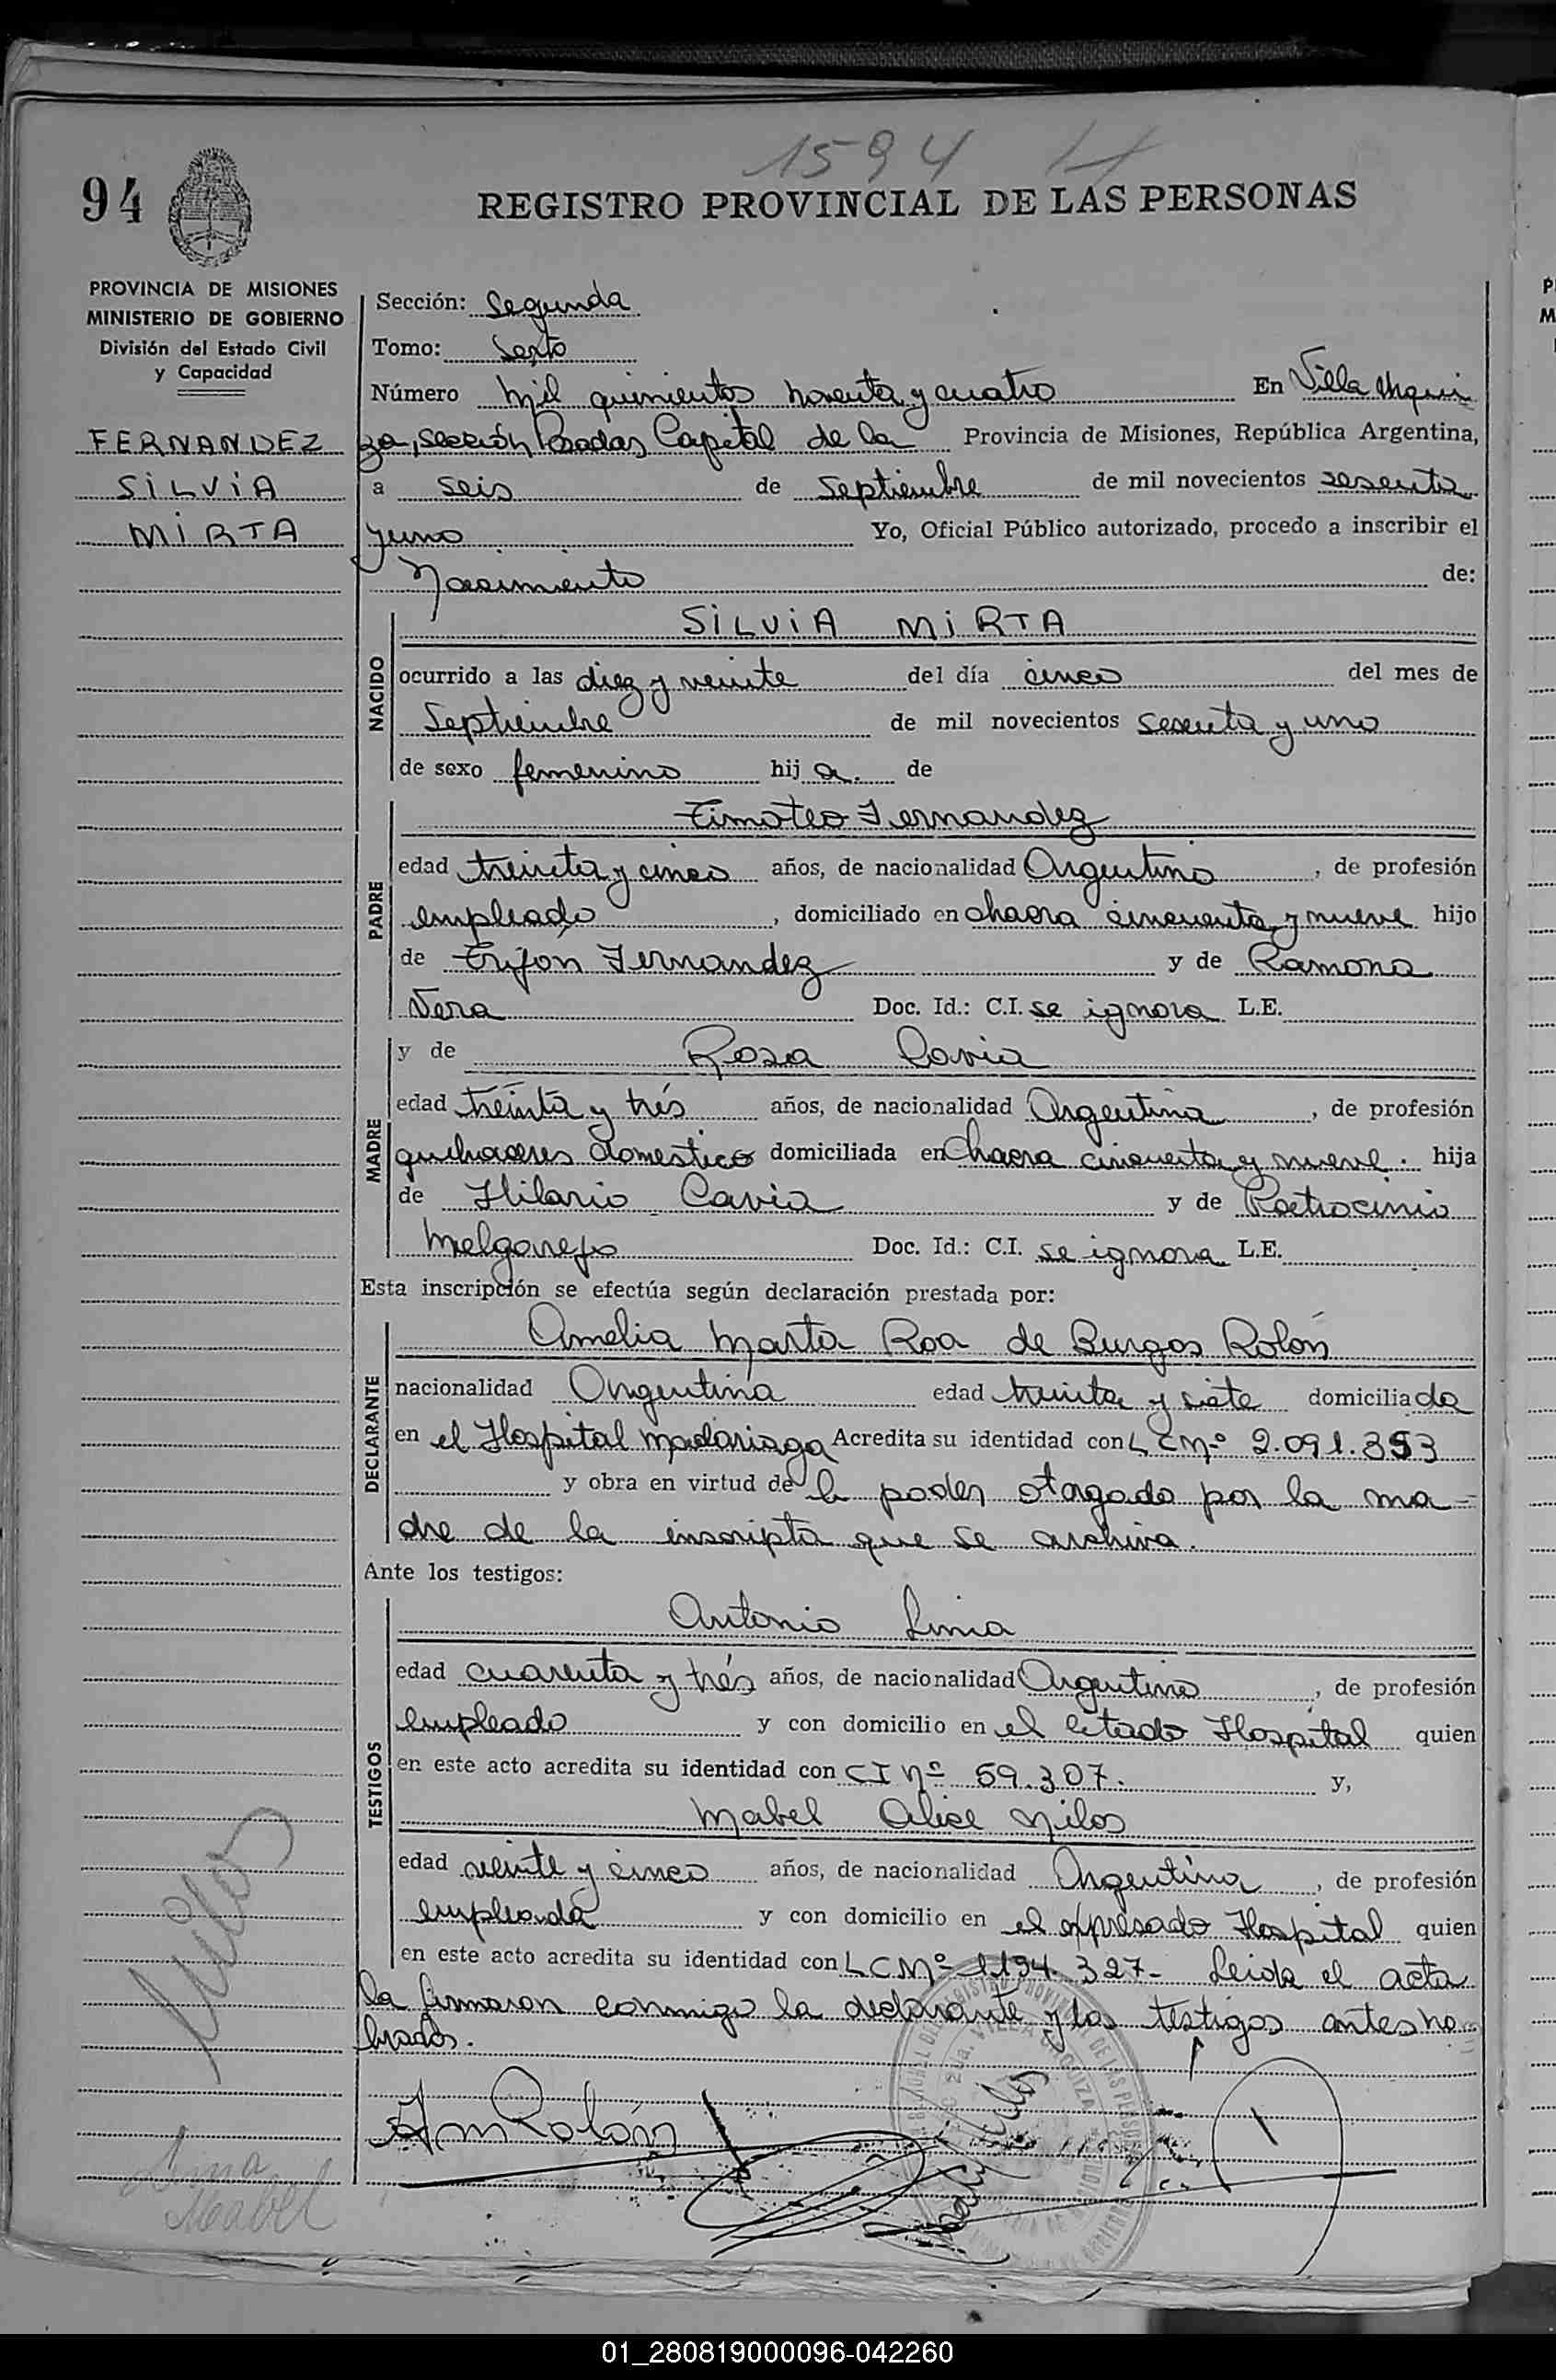 1594
94
REGISTRO PROVINCIAL DE LAS PERSONAS
PROVINCIA DE MISIONES
MINISTERIO DE GOBIERNO
División del Estado Civil
y Capacidad
FERNANDEZ
SILVIA
MIRTA
Sección: Segunda
Tomo: Sexto
Número mil quinientos noventa y cuatro En Villa Urqui
za, sección Posadas Capital de la Provincia de Misiones, República Argentina,
a seis de septiembre de mil novecientos sesenta
y uno Yo, Oficial Público autorizado, procedo a inscribir el
Nacimiento de:
NACIDO
SILVIA MIRTA
ocurrido a las diez y veinte del día cinco del mes de
Septiembre de mil novecientos sesenta y uno
de sexo femenino hija. de
PADRE
Timoteo Fernandez
edad treinta y cinco años, de nacionalidad Argentino, de profesión
empleado, domiciliado en chacra cincuenta y nueve hijo
de Trifón Fernandez y de Ramona
Vera Doc. Id.: C.I. se ignora L.E.
MADRE
y de Rosa Cavia
edad treinta y trés años, de nacionalidad Argentina, de profesión
quehaceres domestico domiciliada en Chacra cincuenta y nueve. hija
de Hilario Cavia y de Patrocinio
Melgarejo Doc. Id.: C.I. se ignora L.E.
Esta inscripción se efectúa según declaración prestada por:
DECLARANTE
Amelia Marta Roa de Burgos Rolón
nacionalidad Argentina edad treinta y siete domiciliada
en el Hospital Madariaga Acredita su identidad con L C Nº 2.091.353
y obra en virtud de le poder otorgado por la ma=
dre de la inscripta que se archiva.
Ante los testigos:
TESTIGOS
Antonio Lima
edad cuarenta y trés años, de nacionalidad Argentino, de profesión
empleado y con domicilio en el citado Hospital quien
en este acto acredita su identidad con C I Nº 59.307. y,
Mabel Alice Nilos
edad veinte y cinco años, de nacionalidad Argentina, de profesión
empleada y con domicilio en el expresado Hospital quien
en este acto acredita su identidad con L C Nº 1.194.327- Leida el acta
la firmaron conmigo la declarante y los testigos antes no=
brados.
A m Rolón
Mabel
01_280819000096-042260